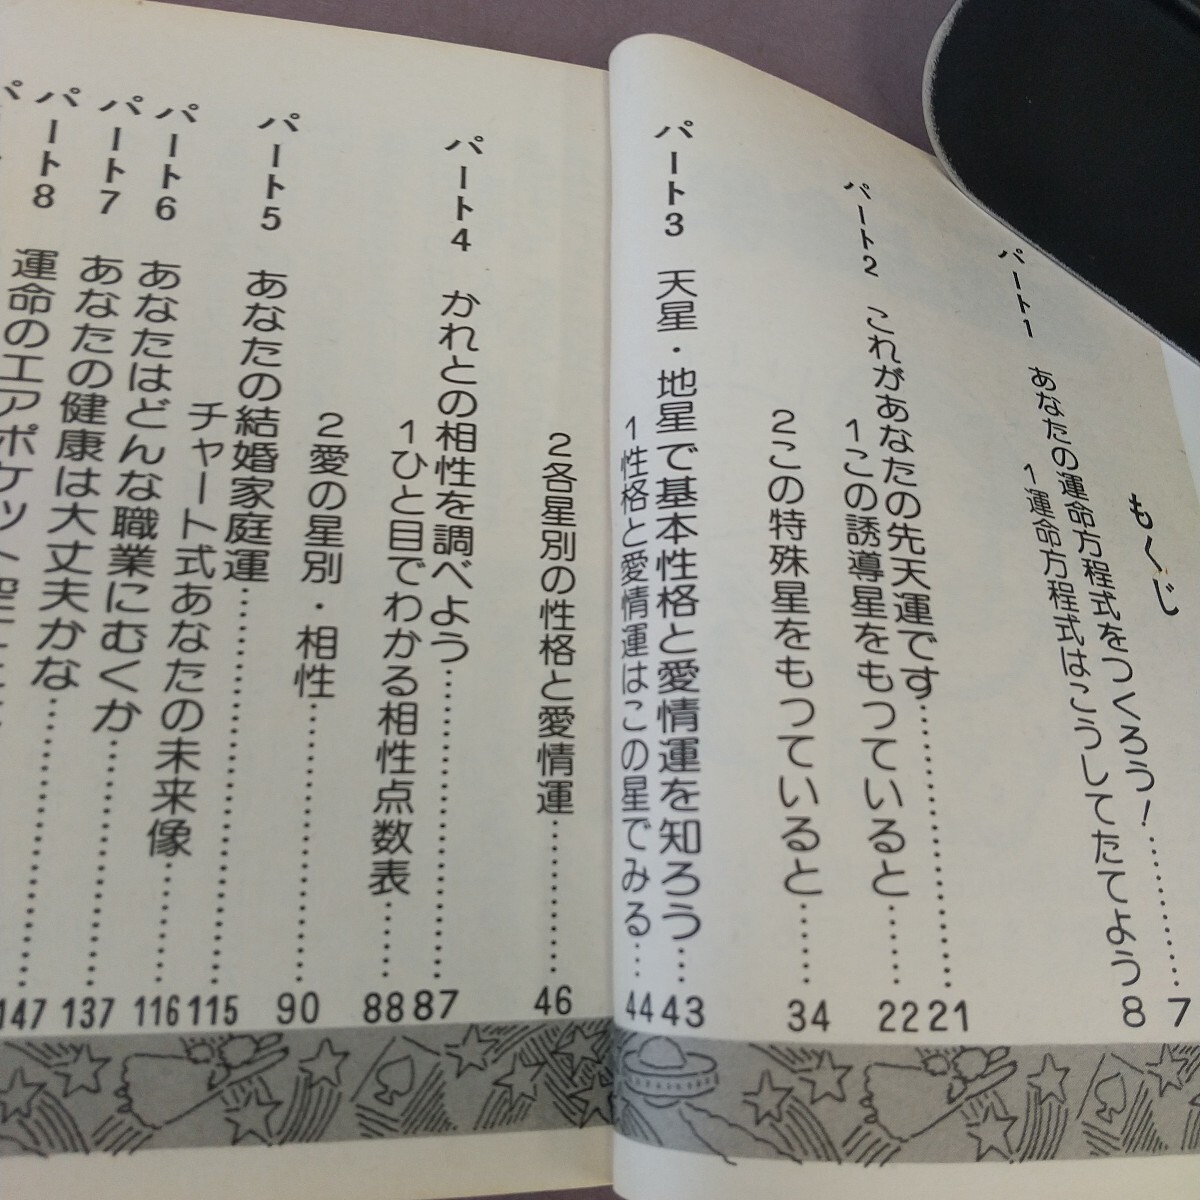 もくじ
パート1 あなたの運命方程式をつくろう!………7
1運命方程式はこうしてたてよう 8
パート2 これがあなたの先天運です………21
1この誘導星をもっていると………22
2この特殊星をもっていると………34
パート3 天星・地星で基本性格と愛情運を知ろう…43
1性格と愛情運はこの星でみる…44
2各星別の性格と愛情運………46
パート4 かれとの相性を調べよう………87
1ひと目でわかる相性点数表………88
2愛の星別・相性………90
パート5 あなたの結婚家庭運………115
チャート式あなたの未来像………116
パート6 あなたはどんな職業にむくか………137
パート7 あなたの健康は大丈夫かな………147
パート8 運命のエアポケット